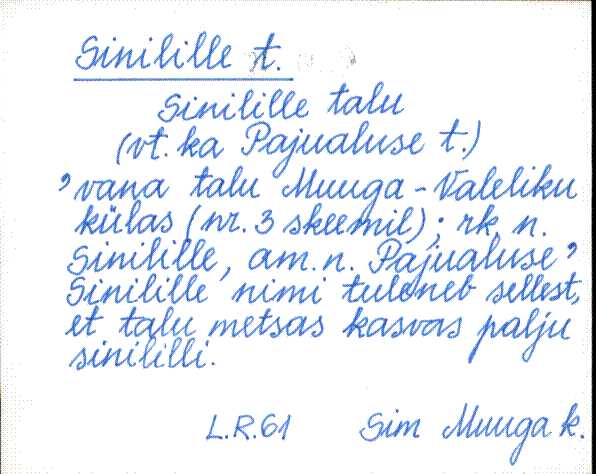 Sinilille t.
Sinilille talu
(vt. ka Pajualuse t.)
'vana talu Muuga-Valeliku
külas (nr. 3 skeemil); rk. n.
Sinilille, am. n. Pajualuse'
Sinilille nimi tuleneb sellest,
et talu metsas kasvas palju
sinililli.
L.R.61 Sim Muuga k.